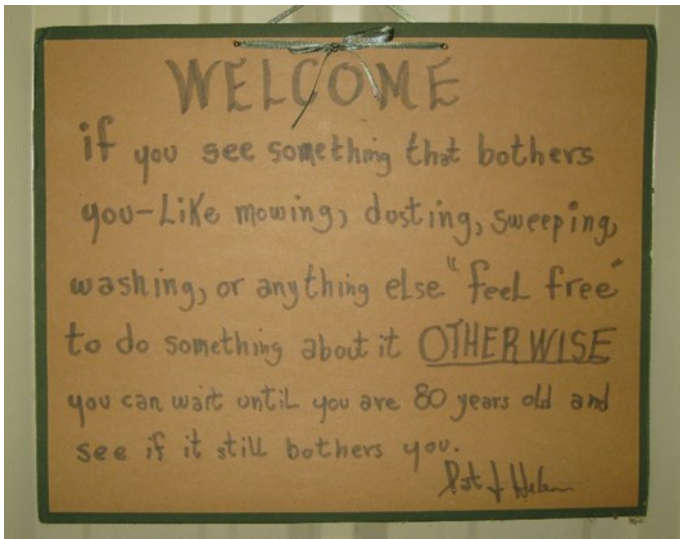 WELCOME
if you see something that bothers
you-Like mowing, dusting, sweeping,
washing, or anything else "feel free"
to do something about it OTHERWISE
you can wait until you are 80 years old and
see if it still bothers you.
Pat & Helen